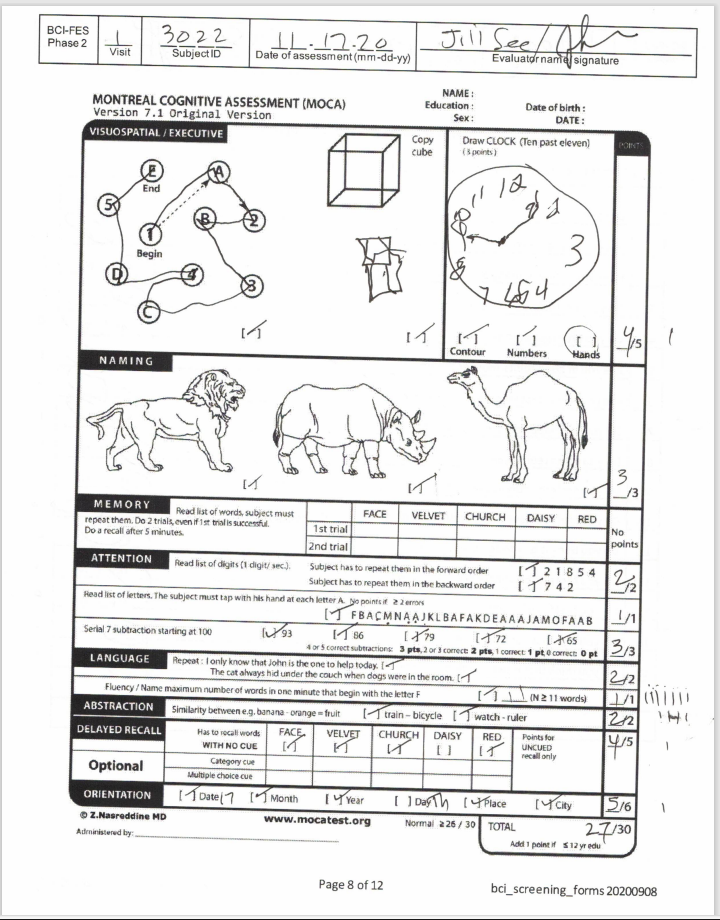 BCI-FES
Phase 2
1
Visit
3022
Subject ID
11.17.20
Date of assessment (mm-dd-yy)
Jill See/
Evaluator name/signature
MONTREAL COGNITIVE ASSESSMENT (MOCA)
Version 7.1 Original Version
NAME :
Education :
Sex :
Date of birth :
DATE :
VISUOSPATIAL / EXECUTIVE
Copy
cube
Draw CLOCK (Ten past eleven)
(3 points)
POINTS
E
End
A
5
B
2
1
Begin
D
4
3
C
11 12
2
3
4
7
8
[✓]
[✓]
[✓]
Contour
[✓]
Numbers
[ ]
Hands
4/5
1
NAMING
[✓]
[✓]
[✓]
3/3
MEMORY
Read list of words, subject must
repeat them. Do 2 trials, even if 1st trial is successful.
Do a recall after 5 minutes.
FACE VELVET CHURCH DAISY RED
1st trial
2nd trial
No
points
ATTENTION
Read list of digits (1 digit/ sec.).
Subject has to repeat them in the forward order [✓] 2 1 8 5 4
Subject has to repeat them in the backward order [✓] 7 4 2
2/2
Read list of letters. The subject must tap with his hand at each letter A. No points if ≥ 2 errors
[✓] F B A C M N A A J K L B A F A K D E A A A J A M O F A A B
1/1
Serial 7 subtraction starting at 100 [✓] 93 [✓] 86 [✓] 79 [✓] 72 [✓] 65
4 or 5 correct subtractions: 3 pts, 2 or 3 correct: 2 pts, 1 correct: 1 pt, 0 correct: 0 pt
3/3
LANGUAGE
Repeat : I only know that John is the one to help today. [✓]
The cat always hid under the couch when dogs were in the room. [✓]
2/2
Fluency / Name maximum number of words in one minute that begin with the letter F [✓] ____ (N ≥ 11 words)
1/1
ABSTRACTION
Similarity between e.g. banana - orange = fruit [✓] train – bicycle [✓] watch - ruler
2/2
DELAYED RECALL
Has to recall words
WITH NO CUE
FACE [✓] VELVET [✓] CHURCH [✓] DAISY [ ] RED [✓]
Points for
UNCUED
recall only
4/5
1
Optional
Category cue
Multiple choice cue
ORIENTATION
[✓] Date 17 [✓] Month [✓] Year [ ] Day Th [✓] Place [✓] City
5/6
1
© Z.Nasreddine MD
www.mocatest.org
Normal ≥ 26 / 30
TOTAL
27/30
Add 1 point if ≤ 12 yr edu
Administered by:
Page 8 of 12
bci_screening_forms 20200908